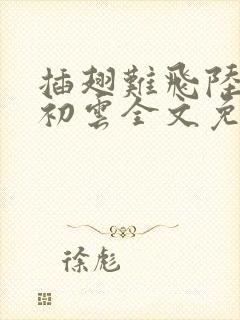 插翅難飛陸
初雲全文免
徐彪